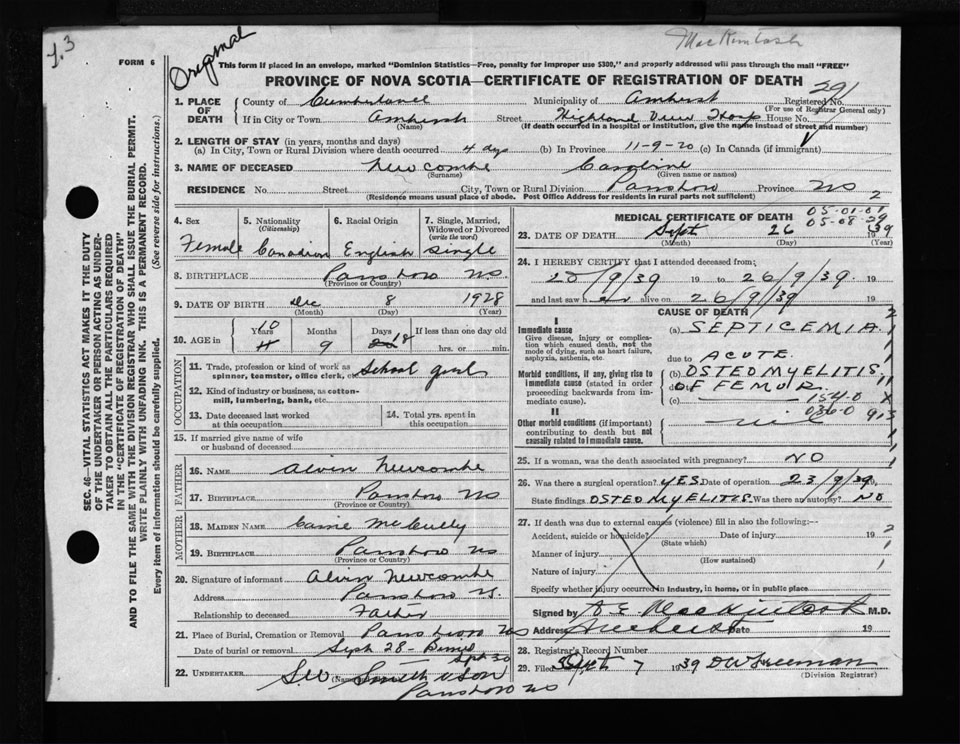 1.3
Original
MacKintosh
FORM 6
This form if placed in an envelope, marked "Dominion Statistics—Free, penalty for improper use $300," and properly addressed will pass through the mail "FREE"
PROVINCE OF NOVA SCOTIA—CERTIFICATE OF REGISTRATION OF DEATH
291
1. PLACE OF DEATH County of Cumberland Municipality of Amherst Registered No.
(For use of Registrar General only)
If in City or Town Amherst Street Highland View Hosp House No.
(Name) (If death occurred in a hospital or institution, give the name instead of street and number)
2. LENGTH OF STAY (in years, months and days)
(a) In City, Town or Rural Division where death occurred 4 dys (b) In Province 11-9-20 (c) In Canada (if immigrant)
3. NAME OF DECEASED Newcombe Caroline
(Surname) (Given name or names)
RESIDENCE No. Street City, Town or Rural Division Parrsboro Province NS 2
(Residence means usual place of abode. Post Office Address for residents in rural parts not sufficient)
4. Sex Female
5. Nationality (Citizenship) Canadian
6. Racial Origin English
7. Single, Married, Widowed or Divorced (write the word) Single
8. BIRTHPLACE Parrsboro NS.
(Province or Country)
9. DATE OF BIRTH Dec 8 1928
(Month) (Day) (Year)
10. AGE in Years 10 Months 9 Days 18 If less than one day old hrs. or min.
OCCUPATION
11. Trade, profession or kind of work as spinner, teamster, office clerk, etc. School girl
12. Kind of industry or business, as cotton-mill, lumbering, bank, etc.
13. Date deceased last worked at this occupation
14. Total yrs. spent in this occupation
15. If married give name of wife or husband of deceased
FATHER
16. NAME Alvin Newcombe
17. BIRTHPLACE Parrsboro NS
(Province or Country)
MOTHER
18. MAIDEN NAME Carrie McCully
19. BIRTHPLACE Parrsboro NS
(Province or Country)
20. Signature of informant Alvin Newcombe
Address Parrsboro NS.
Relationship to deceased Father
21. Place of Burial, Cremation or Removal Parrsboro NS
Date of burial or removal Sept 28 - Burial
Sept 30
22. UNDERTAKER Smith & Son
Parrsboro NS
MEDICAL CERTIFICATE OF DEATH
05-01-01
05-08-29
23. DATE OF DEATH Sept 26 1939
(Month) (Day) (Year)
24. I HEREBY CERTIFY that I attended deceased from:
20/9/39 19 to 26/9/39. 19
and last saw her alive on 26/9/39 19
CAUSE OF DEATH
I
Immediate cause
Give disease, injury or complication which caused death, not the mode of dying, such as heart failure, asphyxia, asthenia, etc.
(a) SEPTICEMIA
due to ACUTE
Morbid conditions, if any, giving rise to immediate cause (stated in order proceeding backwards from immediate cause).
(b) OSTEOMYELITIS
due to OF FEMUR.
(c) 154.0
036.0 913
II
Other morbid conditions (if important) contributing to death but not causally related to immediate cause.
nil
25. If a woman, was the death associated with pregnancy? NO
26. Was there a surgical operation? YES Date of operation 23/9/39
State findings OSTEOMYELITIS. Was there an autopsy? NO
27. If death was due to external causes (violence) fill in also the following:—
Accident, suicide or homicide? Date of injury 19
(State which)
Manner of injury
(How sustained)
Nature of injury
Specify whether injury occurred in industry, in home, or in public place
Signed by A E MacKintosh M.D.
Address Amherst Date 19
28. Registrar's Record Number
29. Filed Oct 7 1939 DW Freeman
(Division Registrar)
SEC. 46—VITAL STATISTICS ACT MAKES IT THE DUTY
OF THE UNDERTAKER OR PERSON ACTING AS UNDER-
TAKER TO OBTAIN ALL THE PARTICULARS REQUIRED
IN THE "CERTIFICATE OF REGISTRATION OF DEATH"
AND TO FILE THE SAME WITH THE DIVISION REGISTRAR WHO SHALL ISSUE THE BURIAL PERMIT.
WRITE PLAINLY WITH UNFADING INK. THIS IS A PERMANENT RECORD.
Every item of information should be carefully supplied. (See reverse side for instructions.)